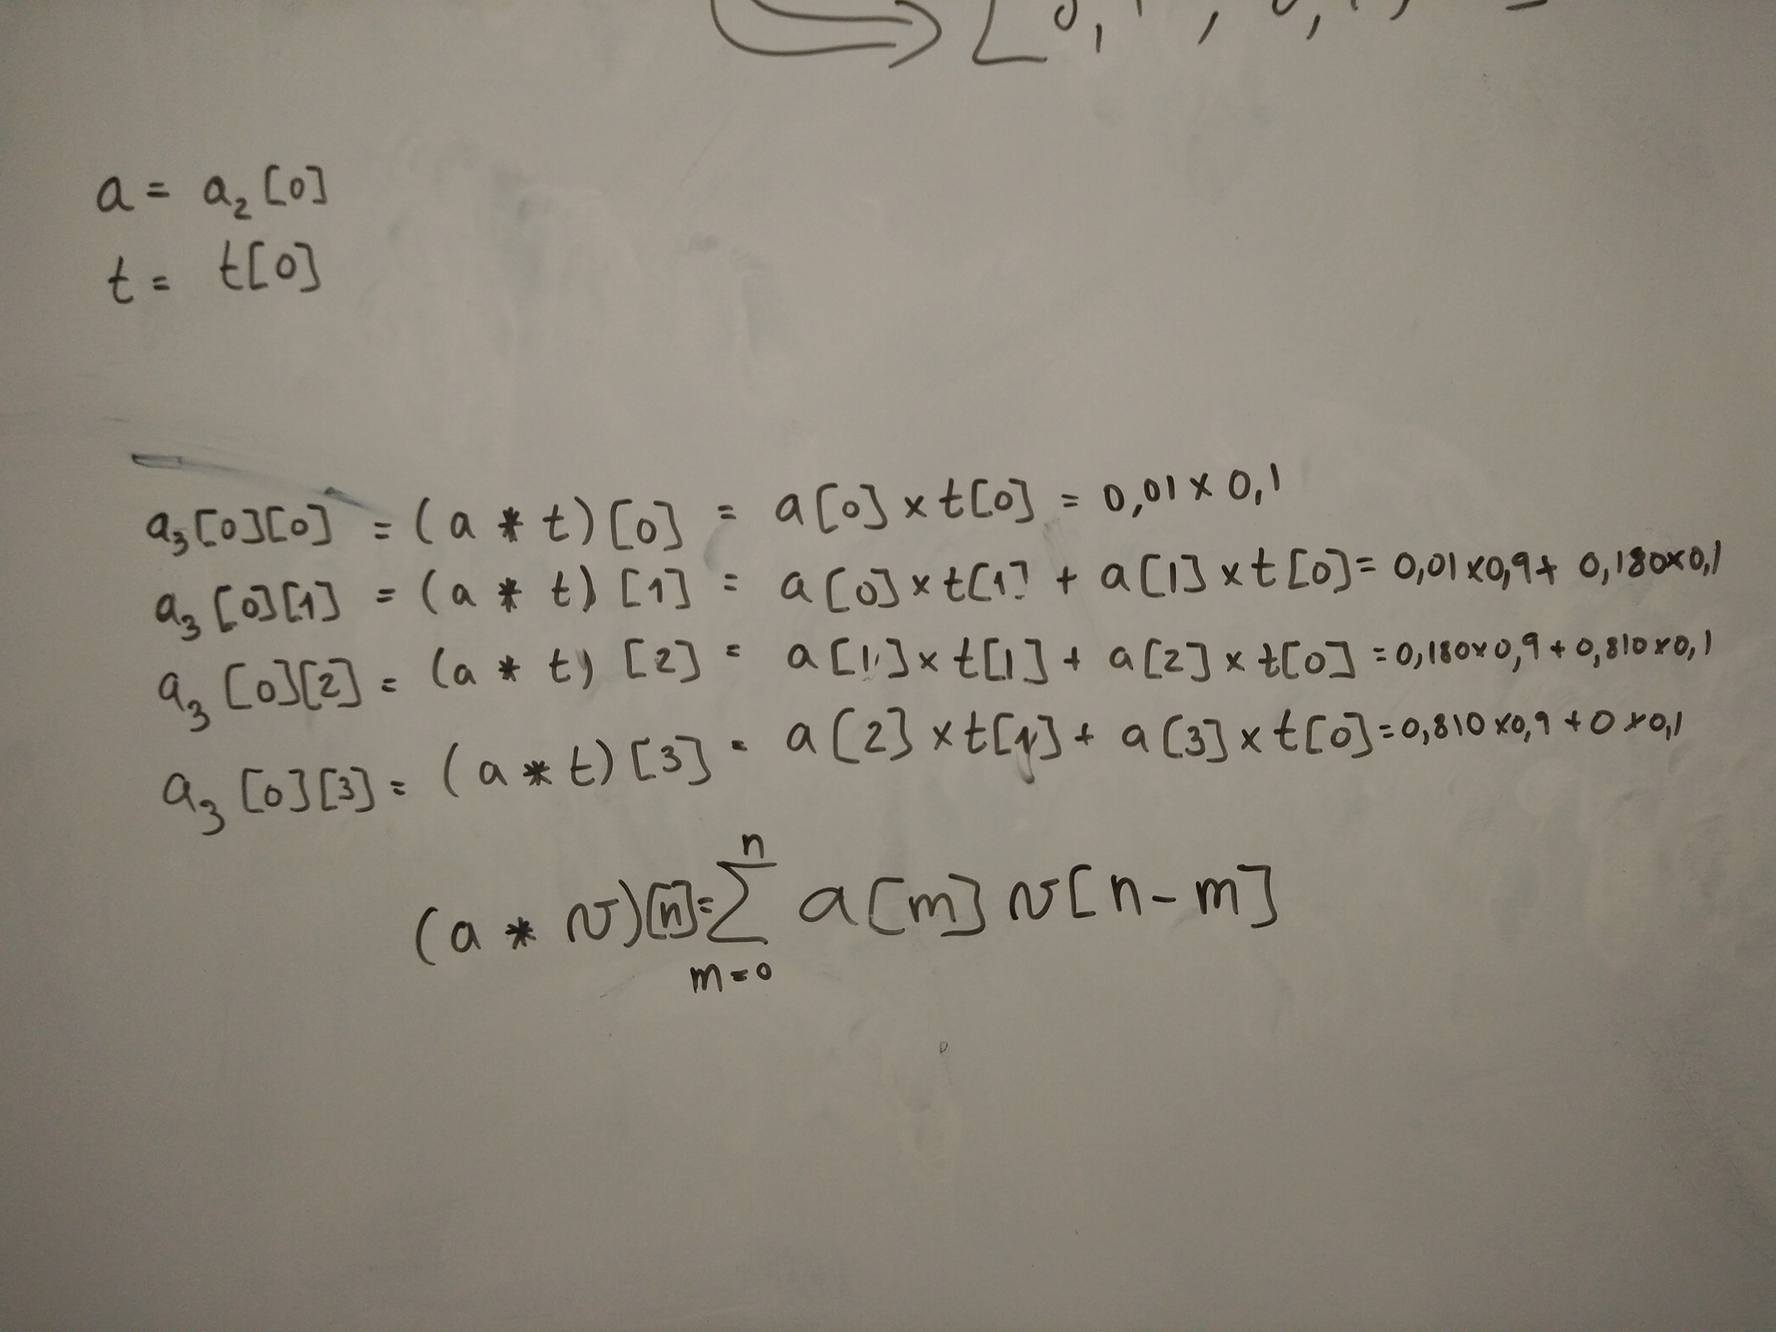 a = a₂[0]
t = t[0]
a₃[0][0] = (a * t)[0] = a[0] × t[0] = 0,01 × 0,1
a₃[0][1] = (a * t)[1] = a[0] × t[1] + a[1] × t[0] = 0,01 × 0,9 + 0,180 × 0,1
a₃[0][2] = (a * t)[2] = a[1] × t[1] + a[2] × t[0] = 0,180 × 0,9 + 0,810 × 0,1
a₃[0][3] = (a * t)[3] = a[2] × t[1] + a[3] × t[0] = 0,810 × 0,9 + 0 × 0,1
(a * v)[n] = ∑ₘ₌₀ⁿ a[m] v[n-m]